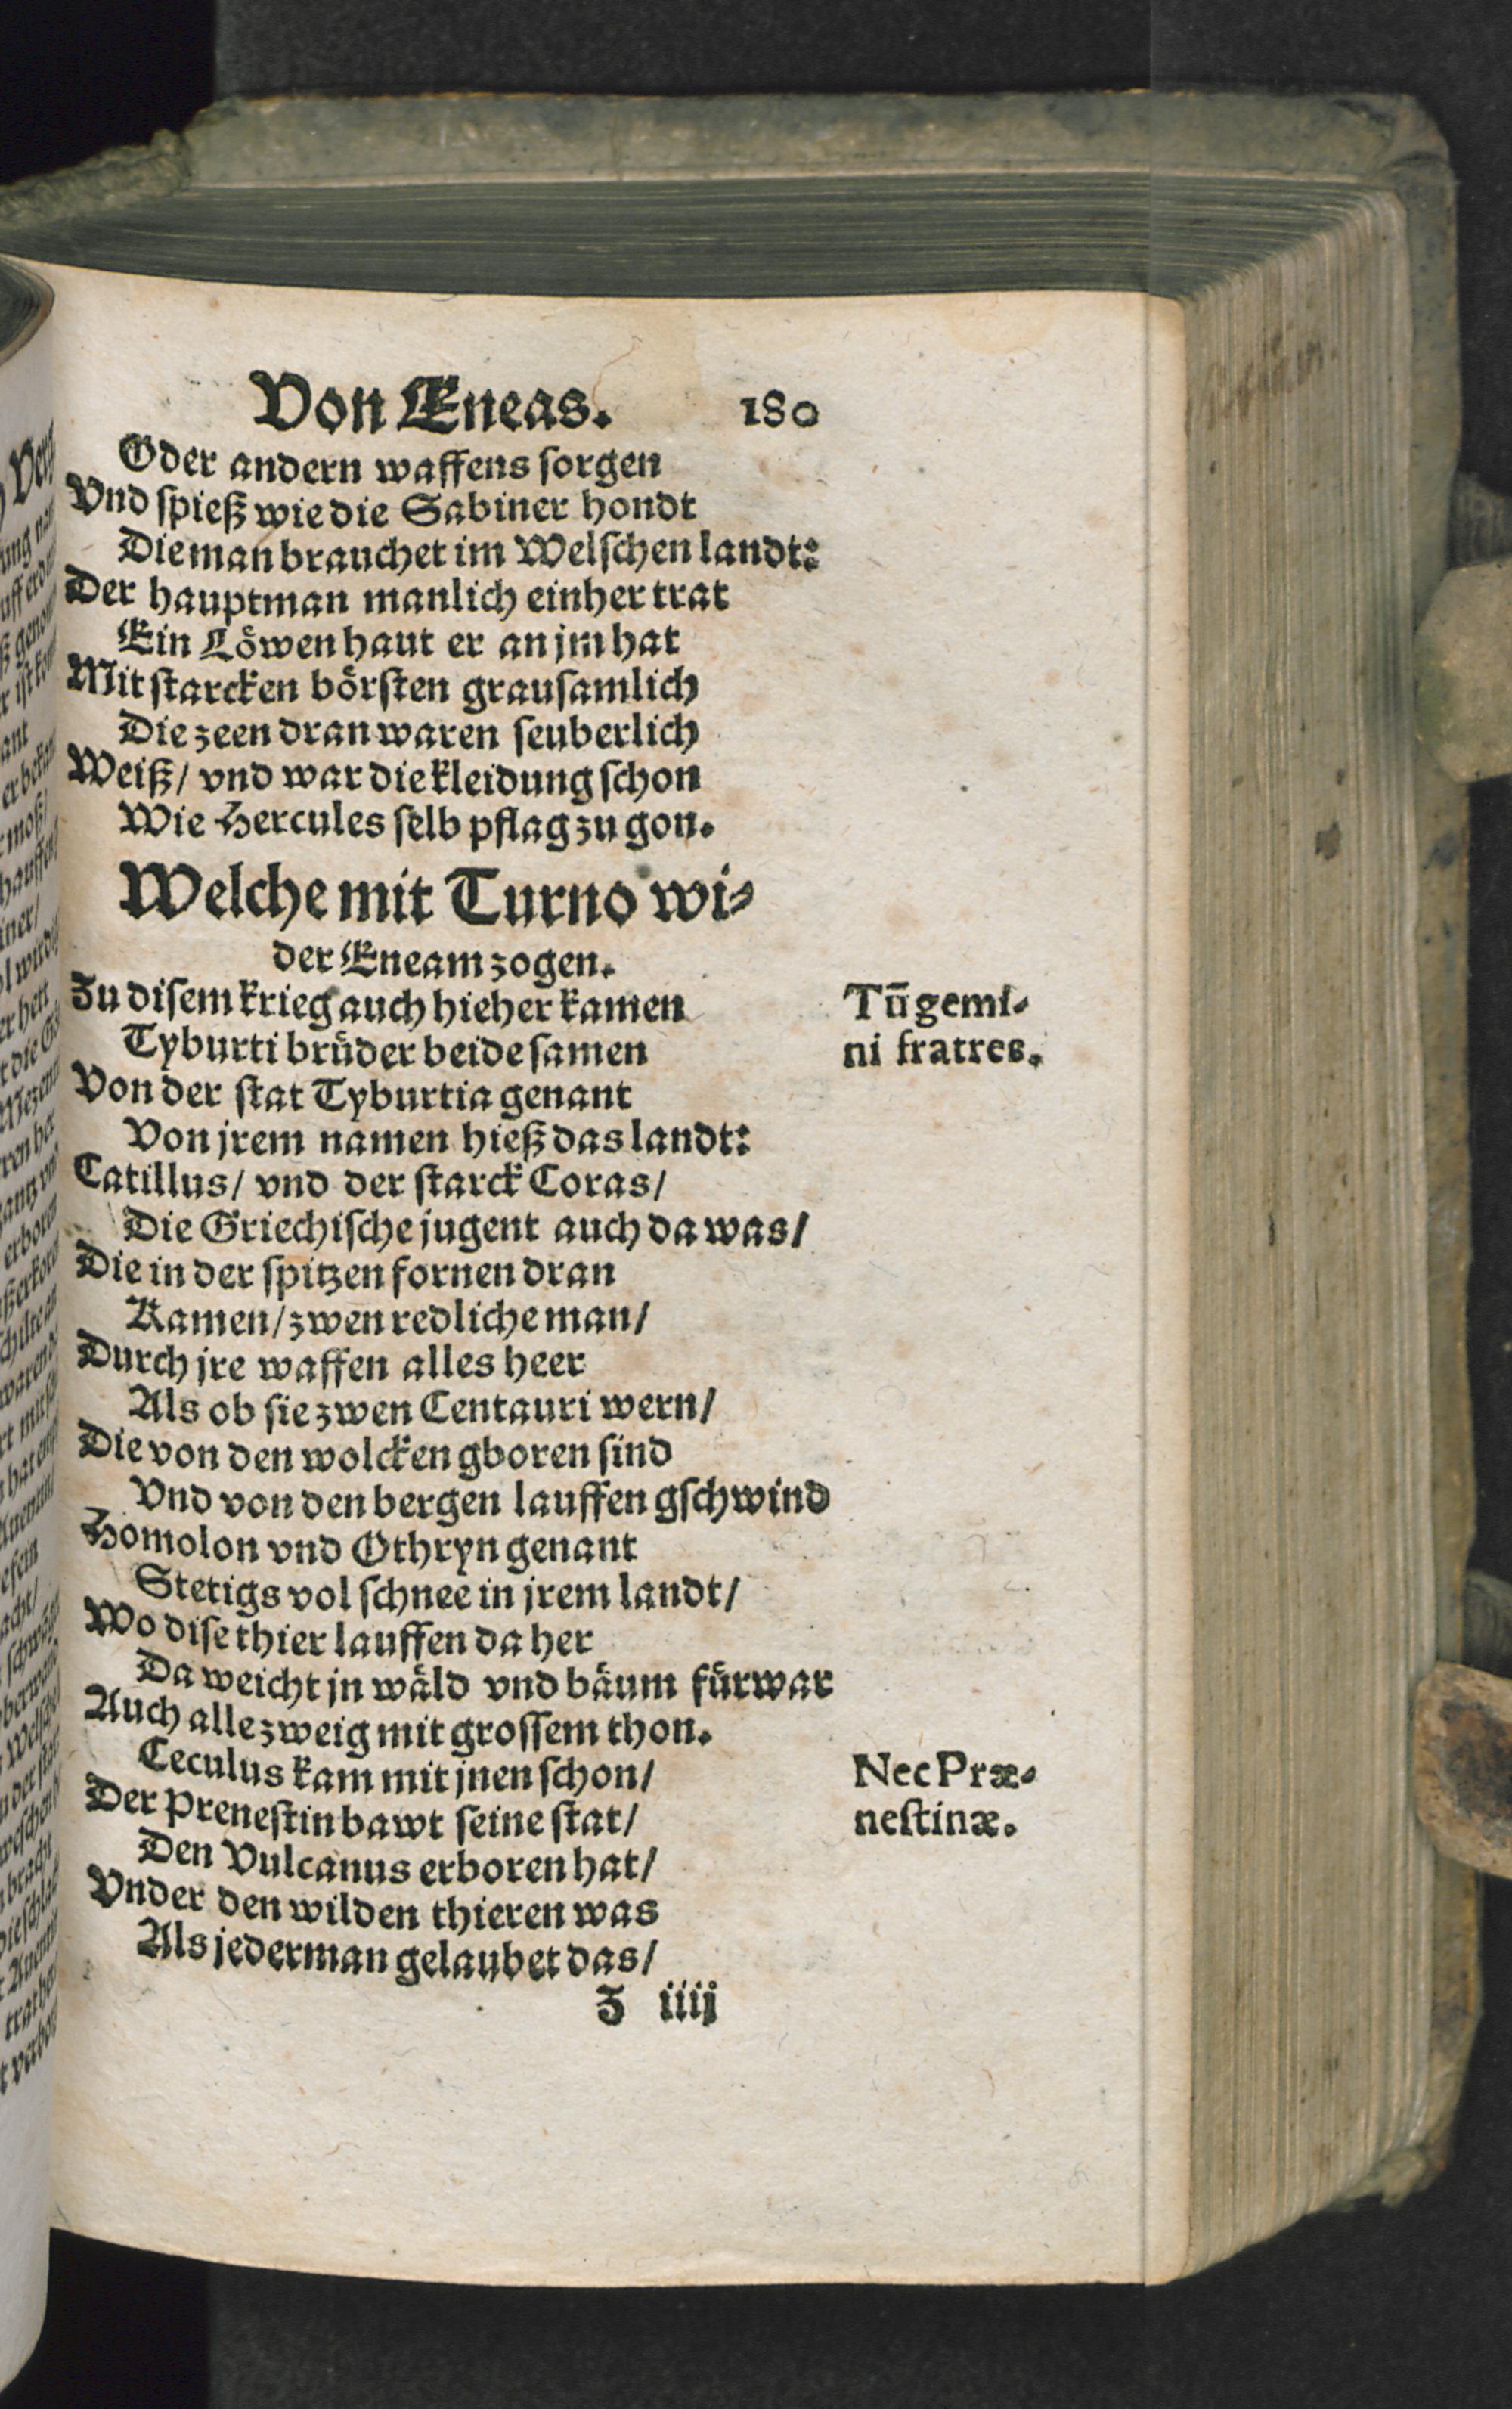 Von Eneas. 180
Oder andern waffens sorgen
Vnd spieß wie die Sabiner hondt
Die man brauchet im Welschen landt:
Der hauptman manlich einher trat
Ein Löwen haut er an jm hat
Mit starcken börsten grausamlich
Die zeen dran waren seuberlich
Weiß/ vnd war die kleidung schon
Wie Hercules selb pflag zu gon.
Welche mit Turno wi⸗
der Eneam zogen.
Zu disem krieg auch hieher kamen
Tū gemi⸗
Tyburti brüder beide samen
ni fratres.
Von der stat Tyburtia genant
Von jrem namen hieß das landt:
Catillus/ vnd der starck Coras/
Die Griechische jugent auch da was/
Die in der spitzen fornen dran
Kamen/ zwen redliche man/
Durch jre waffen alles heer
Als ob sie zwen Centauri wern/
Die von den wolcken gboren sind
Vnd von den bergen lauffen gschwind
Homolon vnd Othryn genant
Stetigs vol schnee in jrem landt/
Wo dise thier lauffen da her
Da weicht jn wäld vnd bäum fürwar
Auch alle zweig mit grossem thon.
Ceculus kam mit jnen schon/
Nec Præ⸗
Der Prenestin bawt seine stat/
nestinæ.
Den Vulcanus erboren hat/
Vnder den wilden thieren was
Als jederman gelaubet das/
Z iiij